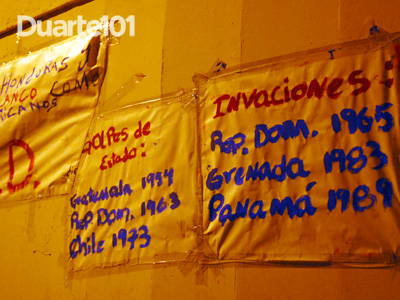 Duarte101
HONDURAS Y
COMO
GOLPES de
Estado:
Guatemala 1954
Rep. Dom. 1963
Chile 1973
INVACIONES:
Rep. Dom. 1965
Grenada 1983
Panamá 1989